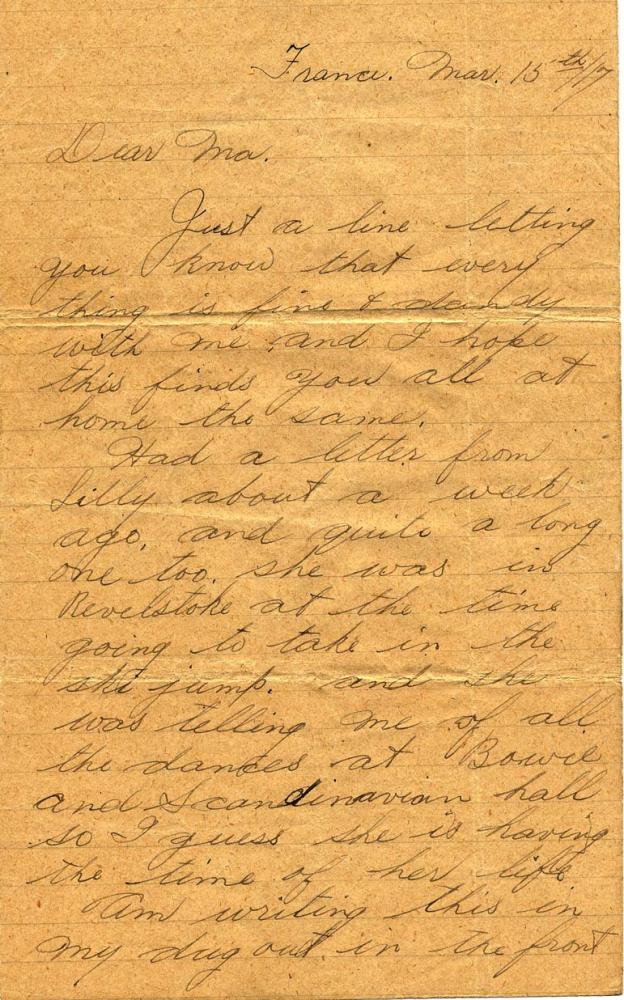 France. Mar. 15th/17
Dear Ma.
Just a line letting
you know that every
thing is fine & dandy
with me, and I hope
this finds you all at
home the same.
Had a letter from
Lilly about a week
ago, and quite a long
one too. she was in
Revelstoke at the time
going to take in the
ski jump. and she
was telling me of all
the dances at Bowie
and Scandinavian hall
so I guess she is having
the time of her life
Am writing this in
my dug out in the front